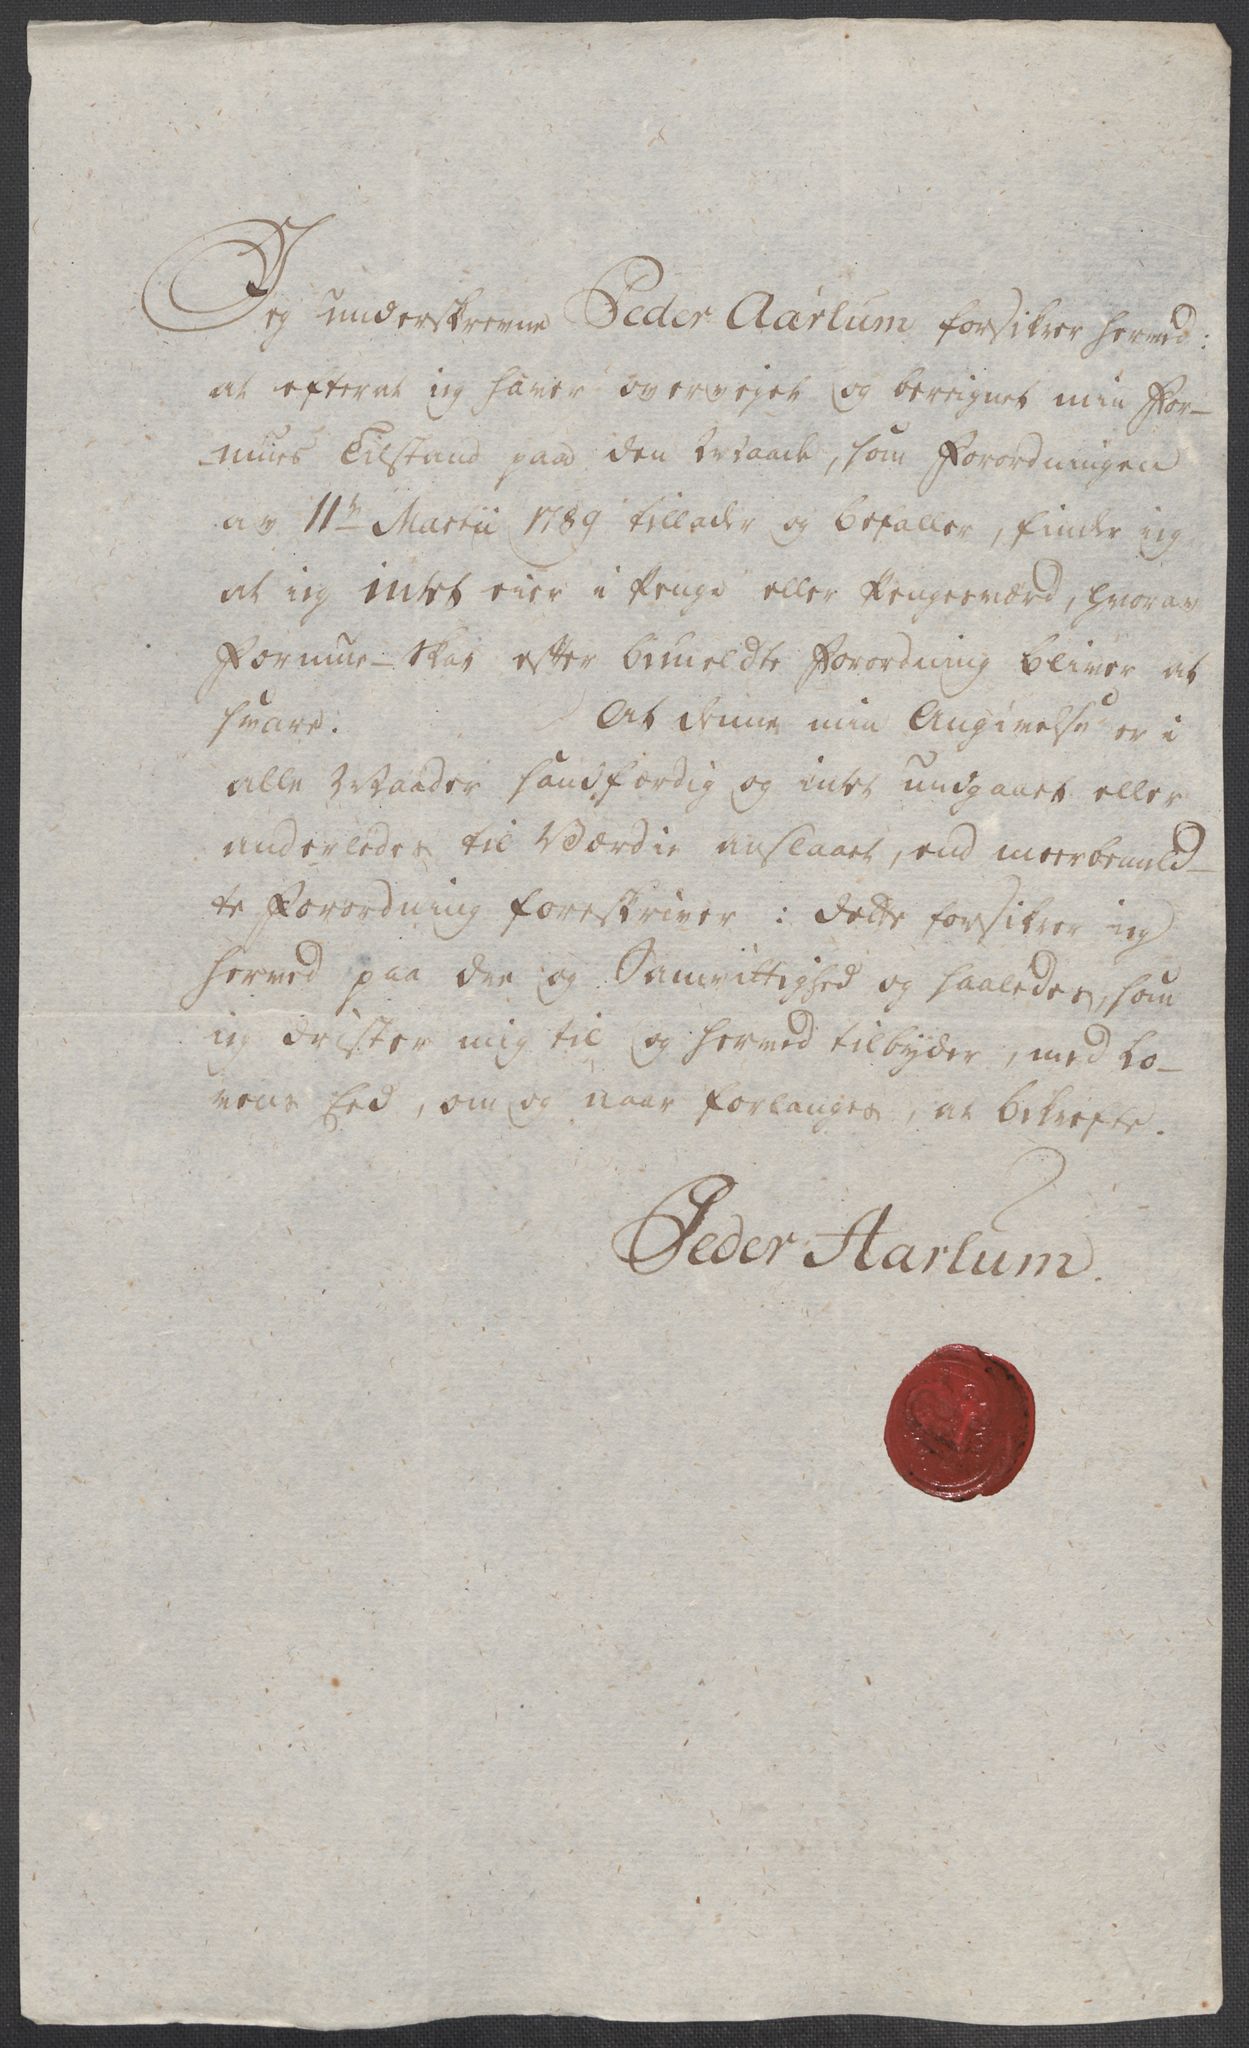 Jeg underskrevne Peder Aarlum forsikrer herved:
at efterat ieg haver overvejet og bereignet min For-
mues Tilstand paa den Maade, som Forordningen
av 11te Martii 1789 tillader og befaller, finder ieg
at ieg intet eier i Penge eller Pengesværd, hvorav
Formue-Skat efter bemeldte Forordning bliver at
svare. At denne min Angivelse er i
alle Maader sandfærdig og intet undgaaet eller
anderledes til Værdie anslaaet, end meerbemeld-
te Forordning foreskriver: dette forsikrer ieg
herved paa Ære og Samvittighed og saaledes, som
ieg drister mig til og herved tilbyder, med Lo-
vens Eed, om og naar forlanges, at bekrefte.
Peder Aarlum.